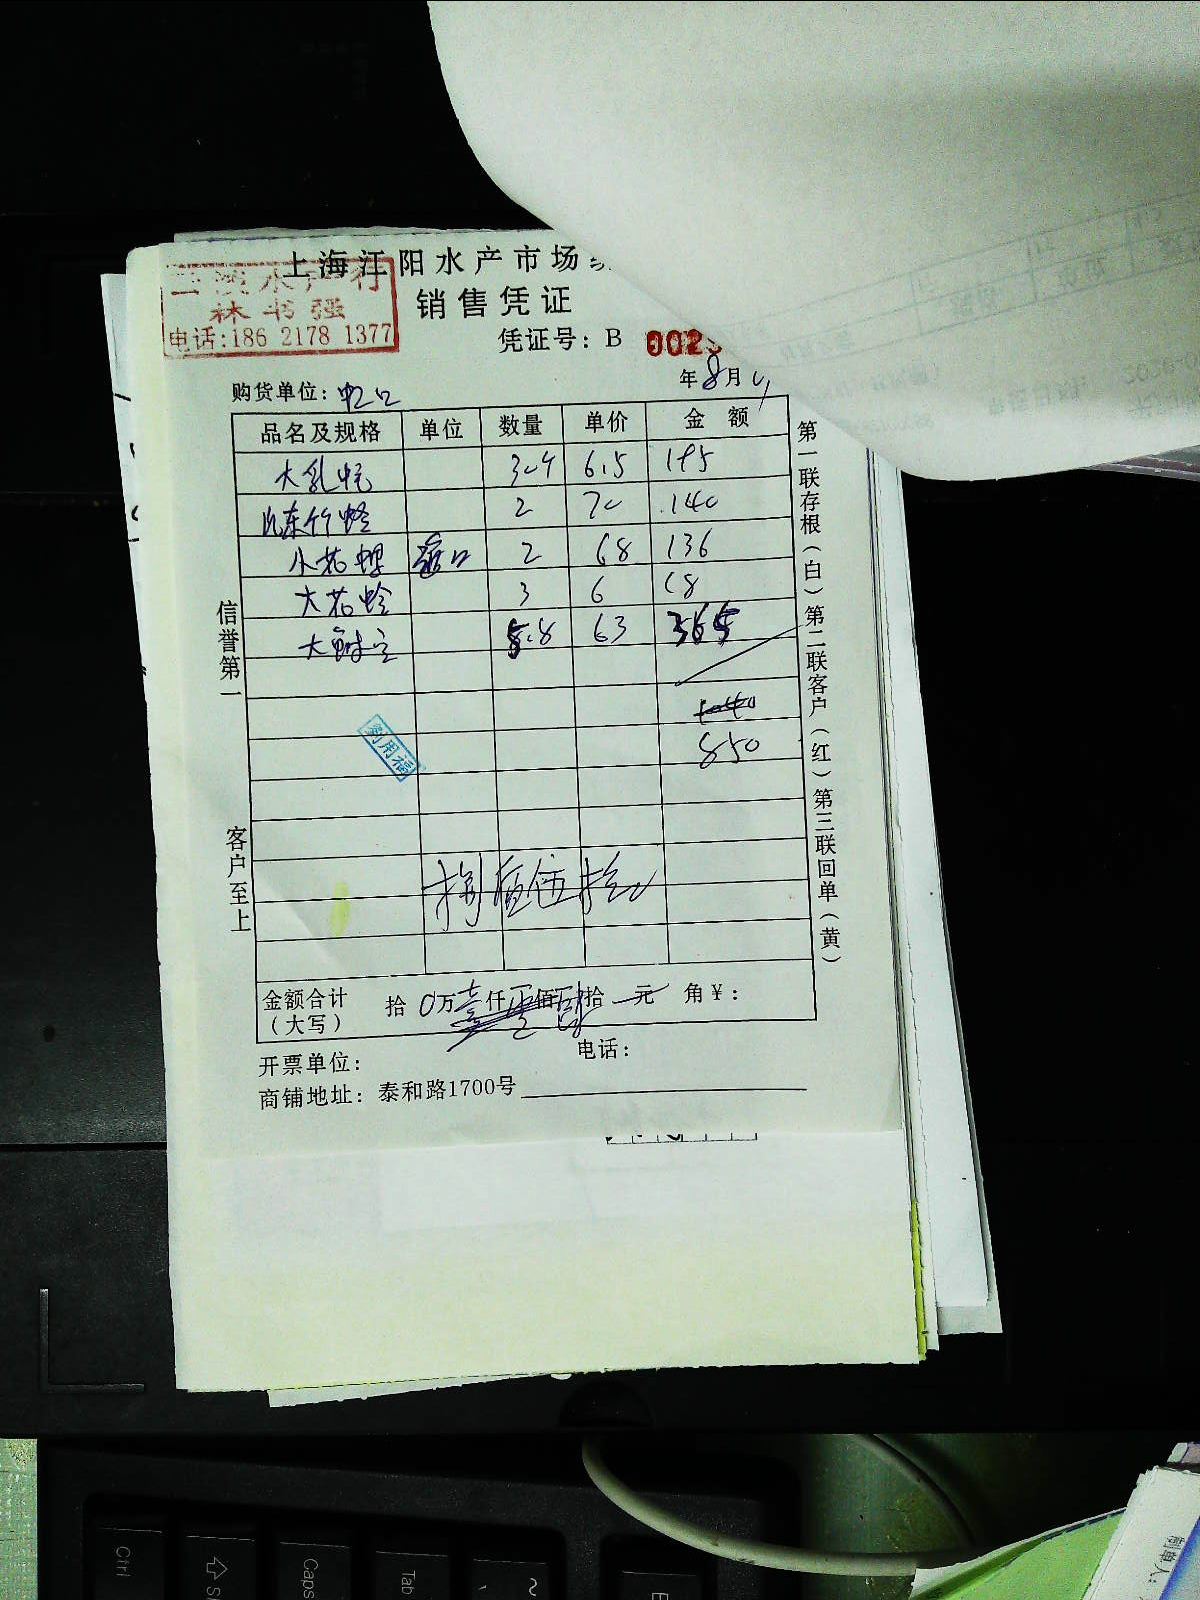 上海江阳水产市场
销售凭证
兰溪水产行
林书强
电话:186 2178 1377
凭证号: B 002
购货单位: 虹口
年8月
品名及规格 单位 数量 单价 金额
大乳蚝 30斤 6.5 195
竹蛏 2 70 140
小花螺 2 68 136
大花蛤 3 6 18
大鲜 5.8 63 365
1040
850
利用福
捌佰伍拾
金额合计 拾 0万壹仟零佰肆拾 元 角¥:
(大写)
开票单位: 电话:
商铺地址: 泰和路1700号
信誉第一
客户至上
第一联存根(白)第二联客户(红)第三联回单(黄)
制单人:
Ctrl
Caps
Tab
~